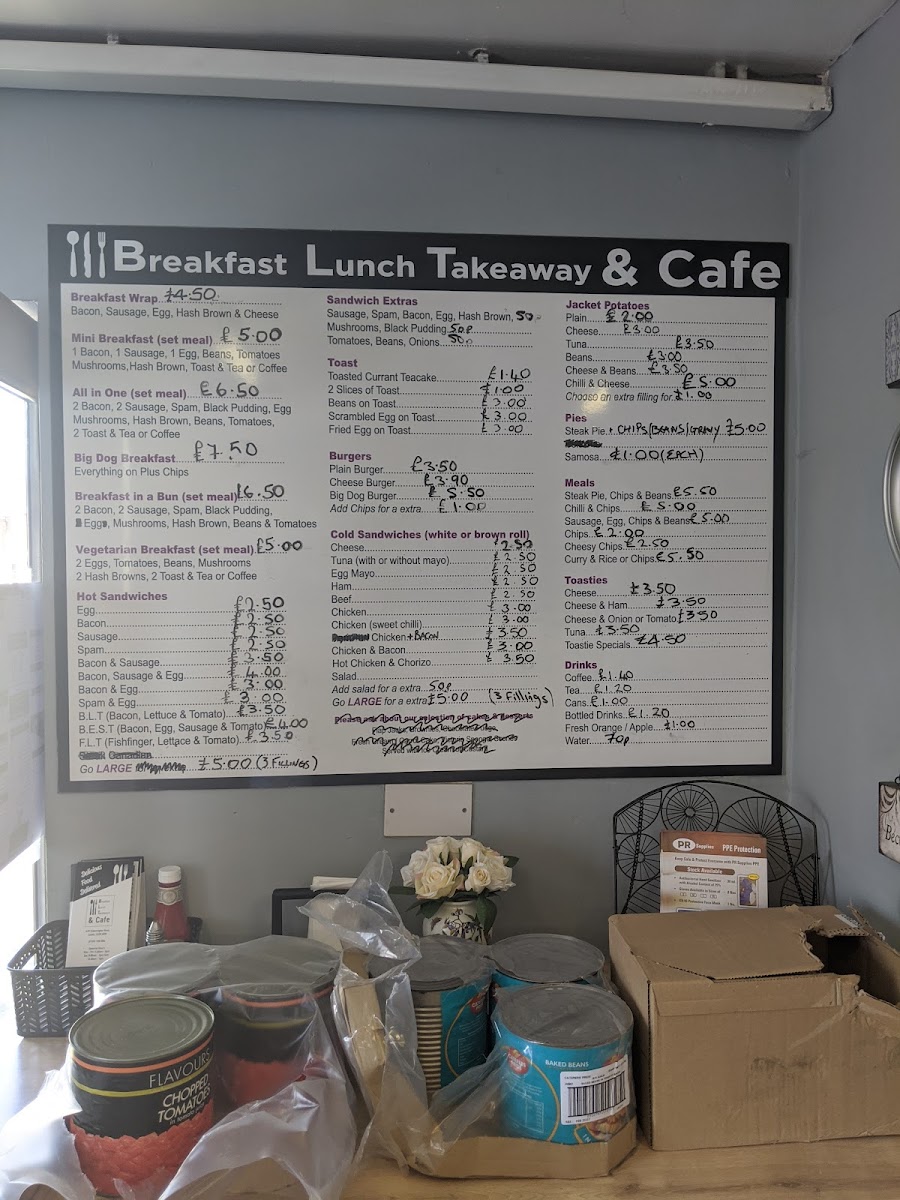 Breakfast Lunch Takeaway & Cafe
Breakfast Wrap £4.50
Bacon, Sausage, Egg, Hash Brown & Cheese
Mini Breakfast (set meal) £5.00
1 Bacon, 1 Sausage, 1 Egg, Beans, Tomatoes
Mushrooms, Hash Brown, Toast & Tea or Coffee
All in One (set meal) £6.50
2 Bacon, 2 Sausage, Spam, Black Pudding, Egg
Mushrooms, Hash Brown, Beans, Tomatoes,
2 Toast & Tea or Coffee
Big Dog Breakfast £7.50
Everything on Plus Chips
Breakfast in a Bun (set meal) £6.50
2 Bacon, 2 Sausage, Spam, Black Pudding,
Egg, Mushrooms, Hash Brown, Beans & Tomatoes
Vegetarian Breakfast (set meal) £5.00
2 Eggs, Tomatoes, Beans, Mushrooms
2 Hash Browns, 2 Toast & Tea or Coffee
Hot Sandwiches
Egg £2.50
Bacon £2.50
Sausage £2.50
Spam £2.50
Bacon & Sausage £3.50
Bacon, Sausage & Egg £4.00
Bacon & Egg £3.00
Spam & Egg £3.00
B.L.T (Bacon, Lettuce & Tomato) £3.50
B.E.S.T (Bacon, Egg, Sausage & Tomato) £4.00
F.L.T (Fishfinger, Lettace & Tomato) £3.50
Go LARGE £5.00 (3 FILLINGS)
Sandwich Extras
Sausage, Spam, Bacon, Egg, Hash Brown, 50p
Mushrooms, Black Pudding 50p
Tomatoes, Beans, Onions 50p
Toast
Toasted Currant Teacake £1.40
2 Slices of Toast £1.00
Beans on Toast £3.00
Scrambled Egg on Toast £3.00
Fried Egg on Toast £3.00
Burgers
Plain Burger £3.50
Cheese Burger £3.90
Big Dog Burger £5.50
Add Chips for a extra £1.00
Cold Sandwiches (white or brown roll)
Cheese £2.50
Tuna (with or without mayo) £2.50
Egg Mayo £2.50
Ham £2.50
Beef £2.50
Chicken £3.00
Chicken (sweet chilli) £3.00
Chicken + BACON £3.50
Chicken & Bacon £3.00
Hot Chicken & Chorizo £3.50
Salad
Add salad for a extra 50p
Go LARGE for a extra £5.00 (3 Fillings)
Jacket Potatoes
Plain £2.00
Cheese £3.00
Tuna £3.50
Beans £3.00
Cheese & Beans £3.50
Chilli & Cheese £5.00
Choose an extra filling for £1.00
Pies
Steak Pie + CHIPS/BEANS/GRAVY £5.00
Samosa £1.00 (EACH)
Meals
Steak Pie, Chips & Beans £5.50
Chilli & Chips £5.00
Sausage, Egg, Chips & Beans £5.00
Chips £2.00
Cheesy Chips £2.50
Curry & Rice or Chips £5.50
Toasties
Cheese £3.50
Cheese & Ham £3.50
Cheese & Onion or Tomato £3.50
Tuna £3.50
Toastie Specials £4.50
Drinks
Coffee £1.40
Tea £1.20
Cans £1.00
Bottled Drinks £1.20
Fresh Orange / Apple £1.00
Water 70p
Delicious
Food
Delivered
& Cafe
PR Supplies PPE Protection
Stock Available
FLAVOURS
CHOPPED
TOMATOES
BAKED BEANS